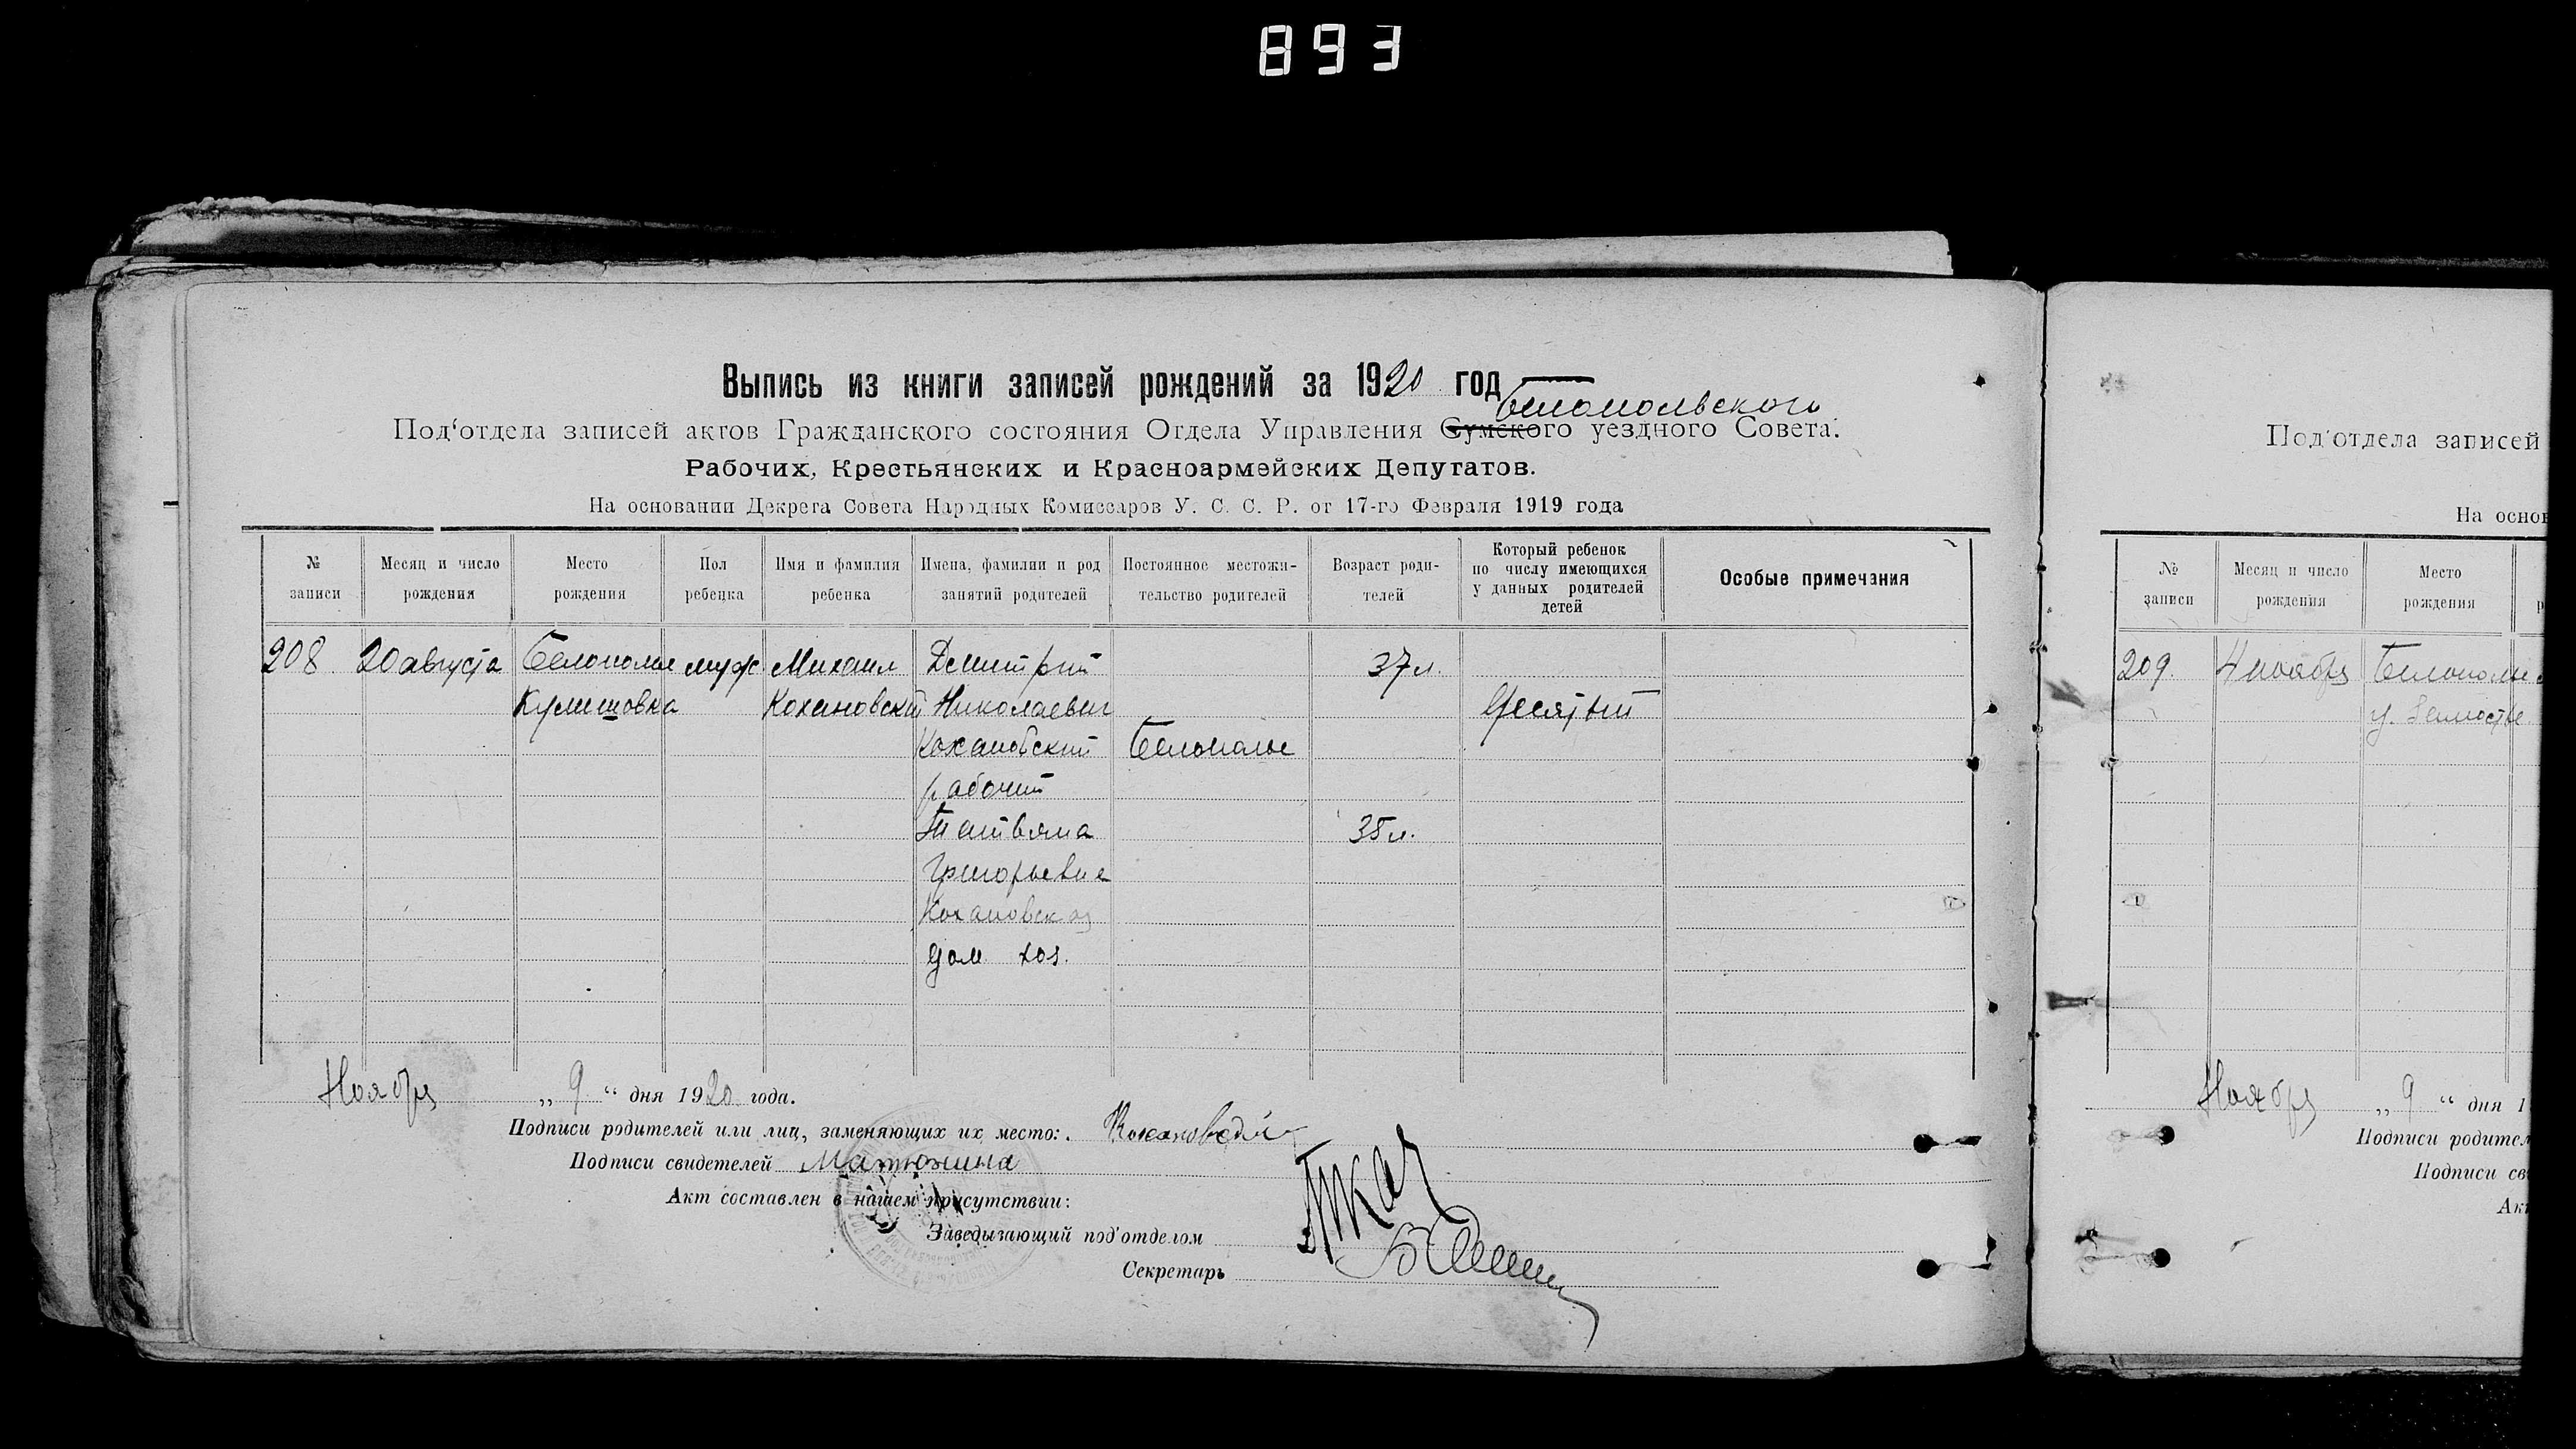 893
Выпись из книги записей рождений за 1920 год
Белопольского
Под‘отдела записей актов Гражданского состояния Отдела Управления Сумского уездного Совета.
Рабочих, Крестьянских и Красноармейских Депутатов.
На основании Декрета Совета Народных Комиссаров У. С. С. Р. от 17-го Февраля 1919 года
№ записи
Месяц и число рождения
Место рождения
Пол ребенка
Имя и фамилия ребенка
Имена, фамилии и род занятий родителей
Постоянное местожительство родителей
Возраст родителей
Который ребенок по числу имеющихся у данных родителей детей
Особые примечания
208 20 августа Белополье муж. Михаил Демитрий 37 л.
Кулишовка Кохановский Николаевич Десятый
Кохановский Белополье
рабочий
Татьяна 35 л.
Григорьевна
Кохановская
дом хоз.
Ноября „ 9 “ дня 1920 года.
Подписи родителей или лиц, заменяющих их место: Кохановский
Подписи свидетелей Матюхина
Акт составлен в нашем присутствии:
Заведывающий под‘отделом Ткач
Секретарь
Под‘отдела записей
На основ
№ записи
Месяц и число рождения
Место рождения
209. 4 ноября Белополье
Ноября „ 9 “ дня 1
Подписи родител
Подписи св
Ак